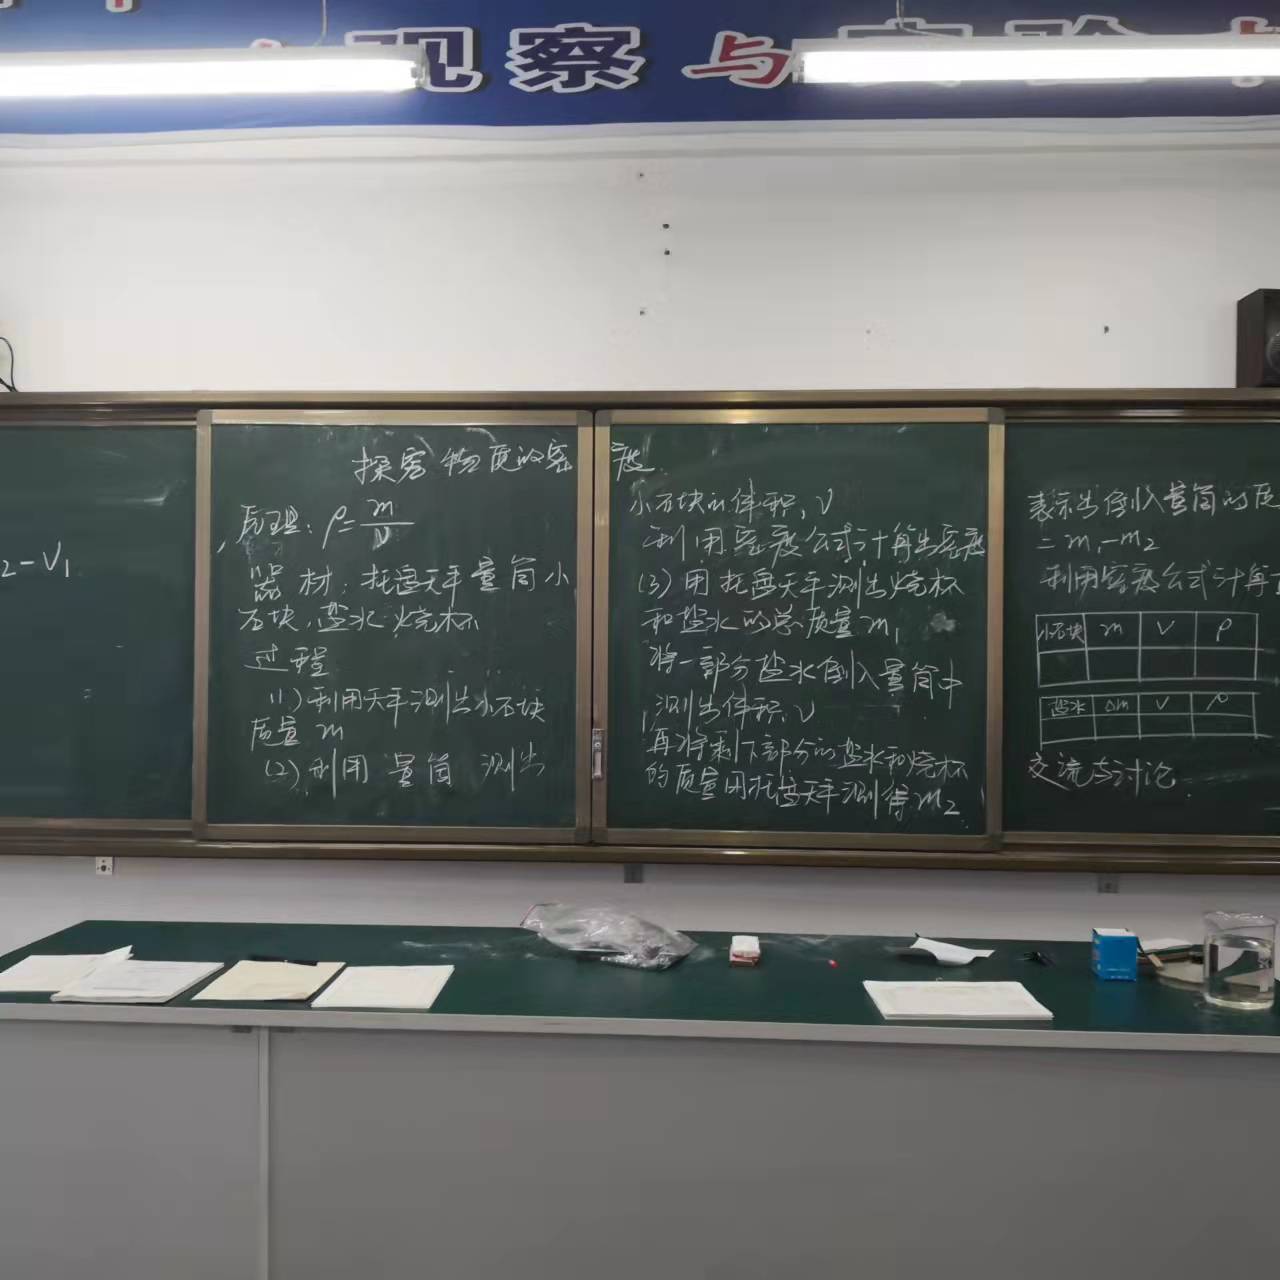 观察与实验
₂-V₁
探究物质的密度
原理：ρ=m/V
器材：托盘天平量筒小
石块，盐水，烧杯
过程
(1)利用天平测出小石块
质量 m
(2)利用量筒 测出
小石块的体积，V
利用密度公式计算出密度
(3)用托盘天平测出烧杯
和盐水的总质量m₁
将一部分盐水倒入量筒中
测出体积，V
再将剩下部分的盐水和烧杯
的质量用托盘天平测得m₂
表示出倒入量筒的质
=m₁-m₂
利用密度公式计算
小石块 m V ρ
盐水 Δm V ρ
交流与讨论